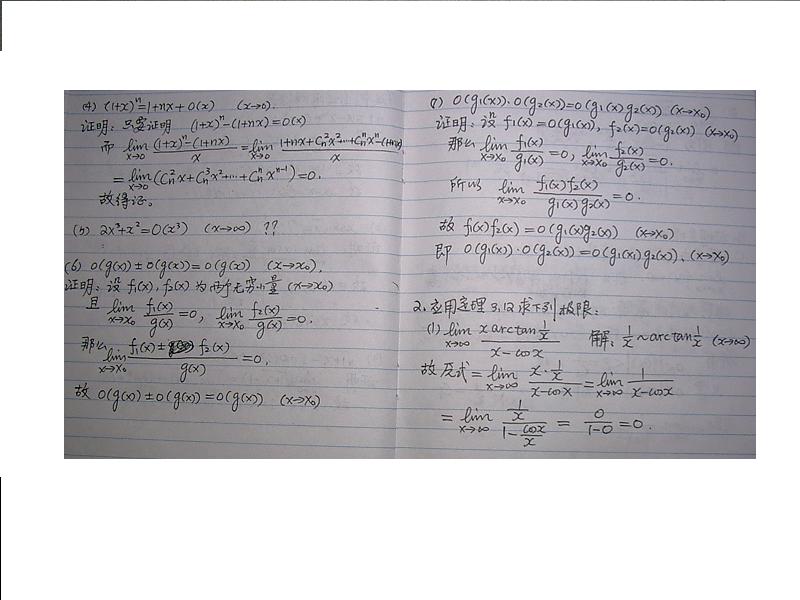 (4) (1+x)^n=1+nx+o(x) (x→0).
证明: 只要证明 (1+x)^n-(1+nx)=o(x)
而 lim_{x→0} ((1+x)^n-(1+nx))/x = lim_{x→0} (1+nx+C_n^2x^2+…+C_n^nx^n-(1+nx))/x
= lim_{x→0} (C_n^2x+C_n^3x^2+…+C_n^nx^{n-1})=0.
故得证.
(5) 2x^3+x^2=O(x^3) (x→∞) ??
(6) o(g(x))±o(g(x))=o(g(x)) (x→x_0).
证明: 设 f_1(x), f_2(x) 为两个无穷小量 (x→x_0)
且 lim_{x→x_0} f_1(x)/g(x)=0, lim_{x→x_0} f_2(x)/g(x)=0.
那么 lim_{x→x_0} (f_1(x)± f_2(x))/g(x)=0,
故 o(g(x))±o(g(x))=o(g(x)) (x→x_0)
(7) o(g_1(x))·o(g_2(x))=o(g_1(x)g_2(x)) (x→x_0)
证明: 设 f_1(x)=o(g_1(x)), f_2(x)=o(g_2(x)) (x→x_0)
那么 lim_{x→x_0} f_1(x)/g_1(x)=0, lim_{x→x_0} f_2(x)/g_2(x)=0.
所以 lim_{x→x_0} f_1(x)f_2(x)/g_1(x)g_2(x)=0.
故 f_1(x)f_2(x)=o(g_1(x)g_2(x)) (x→x_0)
即 o(g_1(x))·o(g_2(x))=o(g_1(x)g_2(x)). (x→x_0)
2. 应用定理 3.12 求下列极限:
(1) lim_{x→∞} (x arctan 1/x)/(x-cosx) 解: 1/x~arctan 1/x (x→∞)
故原式= lim_{x→∞} (x·1/x)/(x-cosx) = lim_{x→∞} 1/(x-cosx)
= lim_{x→∞} (1/x)/(1-cosx/x) = 0/(1-0) =0.